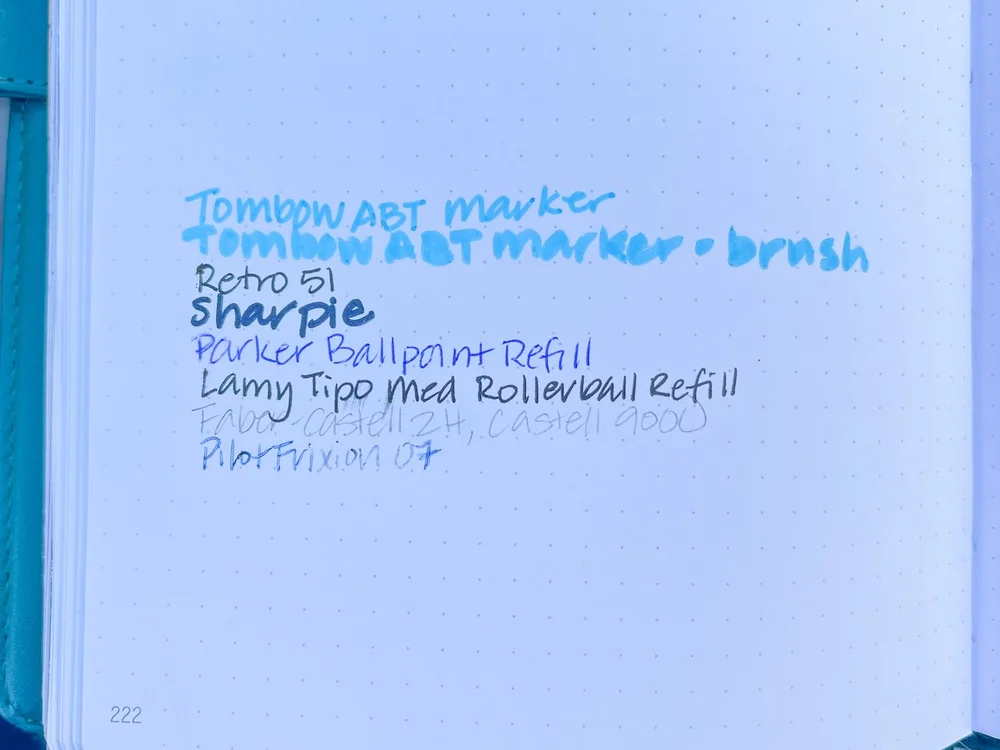 Tombow ABT marker
Tombow ABT marker • brush
Retro 51
sharpie
Parker Ballpoint Refill
Lamy Tipo Med Rollerball Refill
Faber-Castell 2H, Castell 9000
Pilot Frixion 07
222